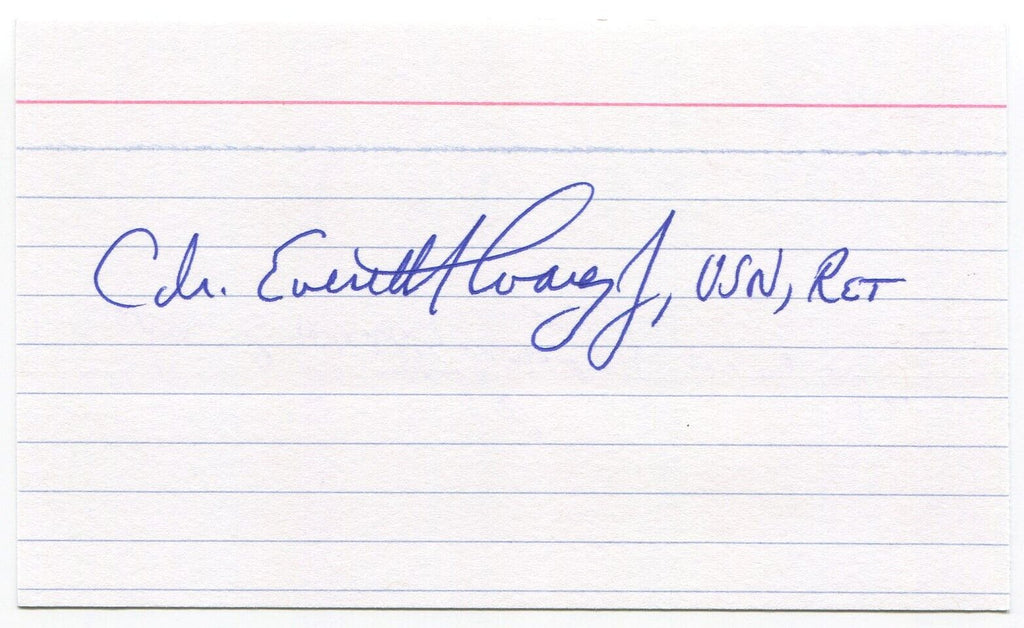 Cdr. Everett Alvarez Jr, USN, RET